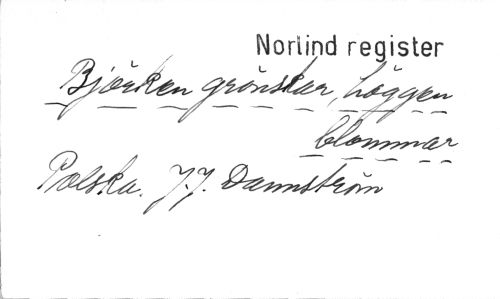 Norlind register
Björken grönskar, häggen
blommar
Polska. J.J. Dannström